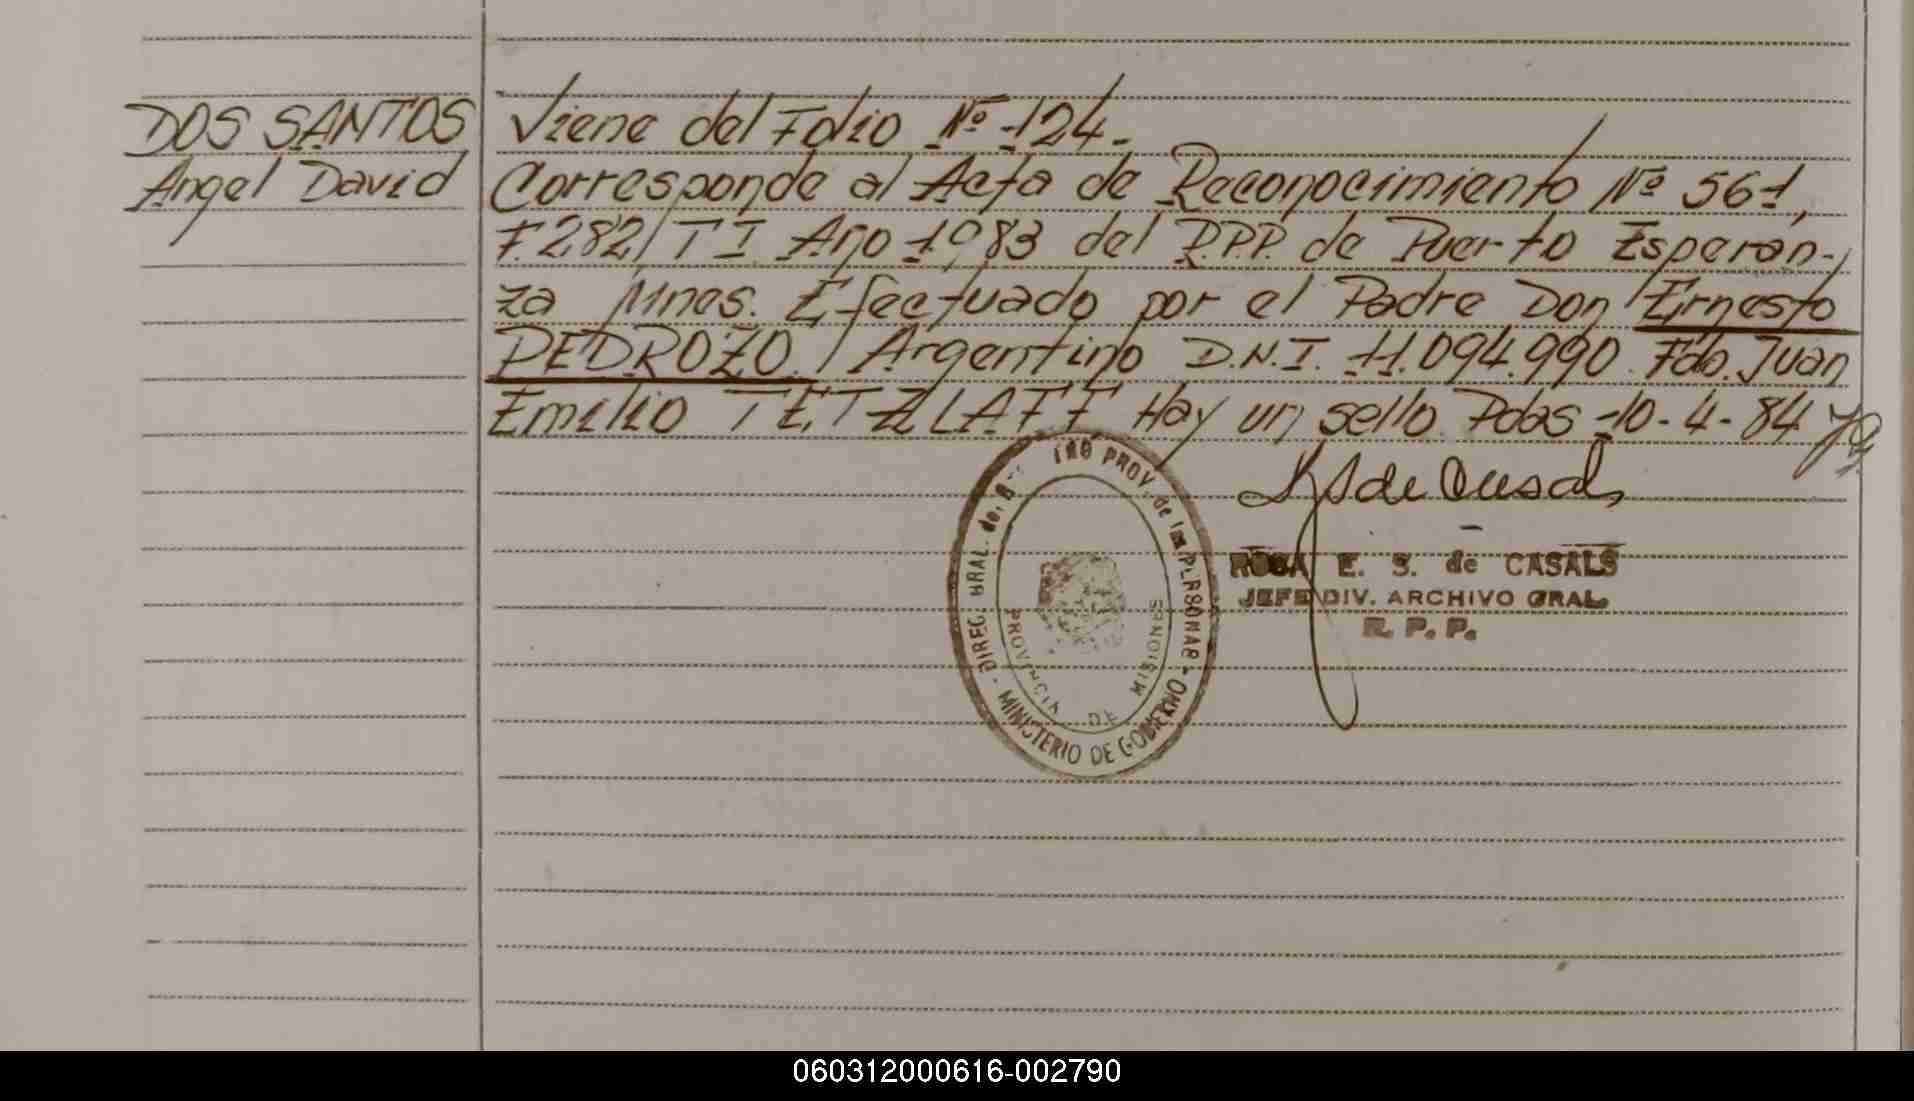 DOS SANTOS
Angel David
Viene del Folio Nº 124.-
Corresponde al Acta de Reconocimiento Nº 561,
F. 282/ T I Año 1.983 del R.P.P. de Puerto Esperan-
za Mnes. Efectuado por el Padre Don Ernesto
PEDROZO / Argentino D.N.I. 11.094.990. Fdo. Juan
Emilio TETZLAFF Hay un sello. Pdas 10-4-84
de Casals
ROSA E. S. de CASALS
JEFE DIV. ARCHIVO GRAL.
R. P. P.
DIREC. GRAL. del PROV. de las PERSONAS - MINISTERIO DE GOBIERNO -
PROVINCIA DE MISIONES
060312000616-002790